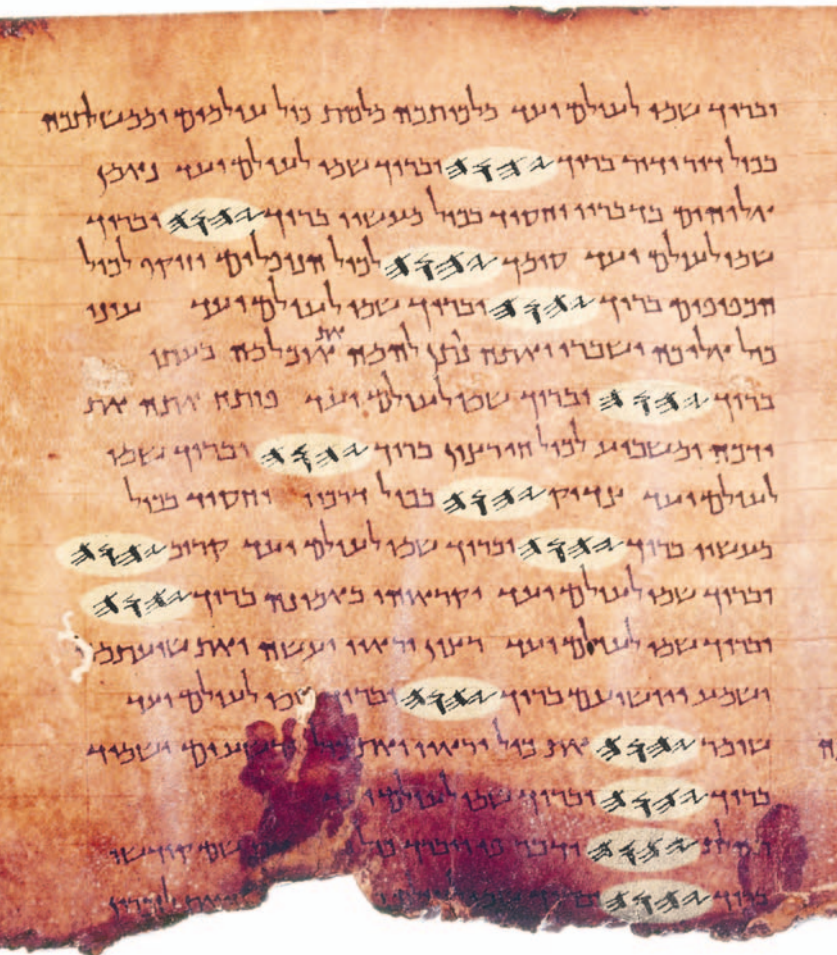 וברוך שמו לעולם ועד מלכותכה מלכות כול עולמים וממשלתכה
בכול דור ודור ברוך 𐤉𐤄𐤅𐤄 וברוך שמו לעולם ועד נאמן
אלוהים בדבריו וחסיד בכול מעשיו ברוך 𐤉𐤄𐤅𐤄 וברוך
שמו לעולם ועד סומך 𐤉𐤄𐤅𐤄 לכול הנופלים וזוקף לכול
הכפופים ברוך 𐤉𐤄𐤅𐤄 וברוך שמו לעולם ועד עיני
כול אליכה ישברו ואתה נותן להמה את אוכלמה בעתו
ברוך 𐤉𐤄𐤅𐤄 וברוך שמו לעולם ועד פותח אתה את
ידכה ומשביע לכול חי רצון ברוך 𐤉𐤄𐤅𐤄 וברוך שמו
לעולם ועד צדיק 𐤉𐤄𐤅𐤄 בכול דרכיו וחסיד בכול
מעשיו ברוך 𐤉𐤄𐤅𐤄 וברוך שמו לעולם ועד קרוב 𐤉𐤄𐤅𐤄
וברוך שמו לעולם ועד יקראוהו באמונה ברוך 𐤉𐤄𐤅𐤄
וברוך שמו לעולם ועד רצון יראיו יעשה ואת שועתמה
ישמע ויושיעם ברוך 𐤉𐤄𐤅𐤄 וברוך שמו לעולם ועד
שומר 𐤉𐤄𐤅𐤄 את כול יראיו ואת כול רשעים ישמיד
ברוך 𐤉𐤄𐤅𐤄 וברוך שמו לעולם ועד
תהלת 𐤉𐤄𐤅𐤄 ידבר פי ויברך כול שם קודשו
ברוך 𐤉𐤄𐤅𐤄 וברוך שמו לעולם זאת לזכרון